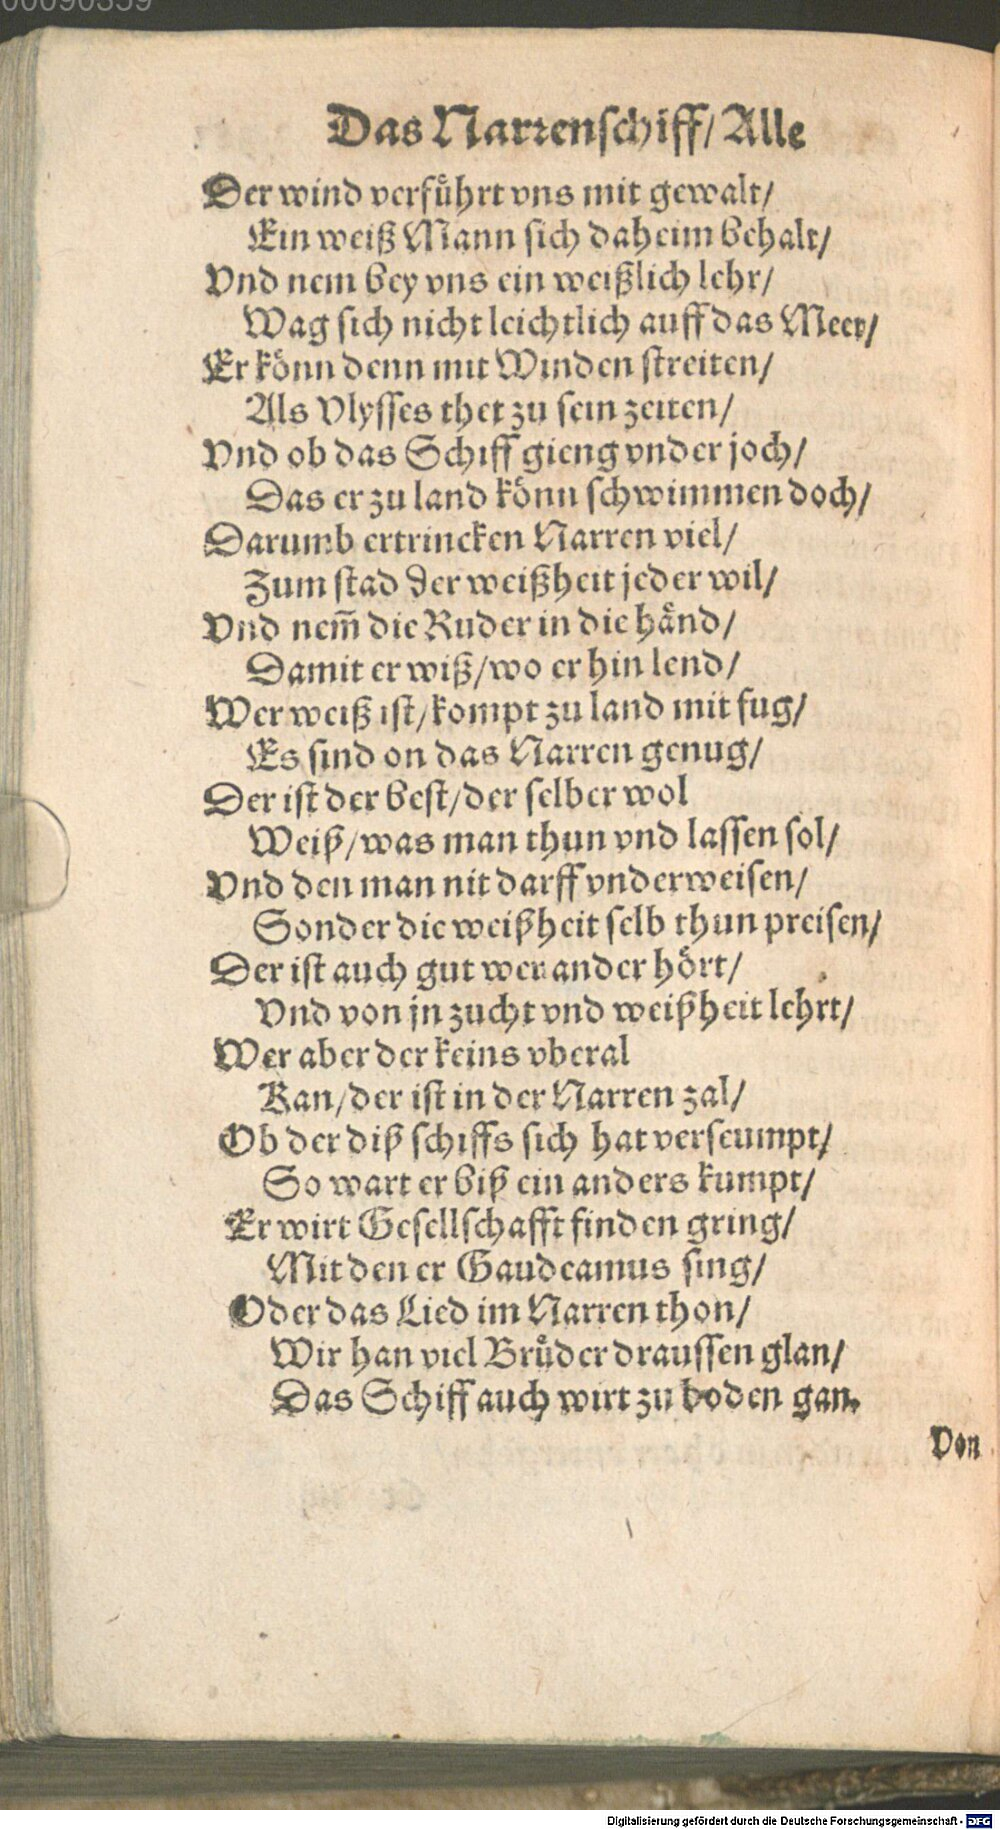 00090359
Das Narrenschiff/ Alle
Der wind verfuͤhrt vns mit gewalt/
Ein weiß Mann sich daheim behalt/
Vnd nem bey vns ein weißlich lehr/
Wag sich nicht leichtlich auff das Meer/
Er koͤnn denn mit Winden streiten/
Als Vlysses thet zu sein zeiten/
Vnd ob das Schiff gieng vnder joch/
Das er zu land koͤnn schwimmen doch/
Darumb ertrincken Narren viel/
Zum stad der weißheit jeder wil/
Vnd nem̃ die Ruder in die haͤnd/
Damit er wiß/wo er hin lend/
Wer weiß ist/kompt zu land mit fug/
Es sind on das Narren genug/
Der ist der best/der selber wol
Weiß/was man thun vnd lassen sol/
Vnd den man nit darff vnderweisen/
Sonder die weißheit selb thun preisen/
Der ist auch gut wer ander hoͤrt/
Vnd von jn zucht vnd weißheit lehrt/
Wer aber der keins vberal
Kan/der ist in der Narren zal/
Ob der diß schiffs sich hat verseumpt/
So wart er biß ein anders kumpt/
Er wirt Gesellschafft finden gring/
Mit den er Gaudeamus sing/
Oder das Lied im Narren thon/
Wir han viel Bruͤder draussen glan/
Das Schiff auch wirt zu boden gan.
Von
Digitalisierung gefördert durch die Deutsche Forschungsgemeinschaft - DFG